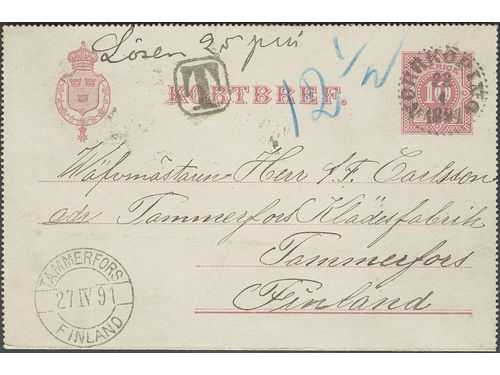 Lösen 25 pni
T
KORTBREF.
12 1/2
SVERIGE
10
NORRKÖPING
1891
Wäfvmästaren Herr S. F. Carlsson
adr Tammerfors Klädesfabrik
Tammerfors
Finland
TAMMERFORS
27 IV 91
FINLAND